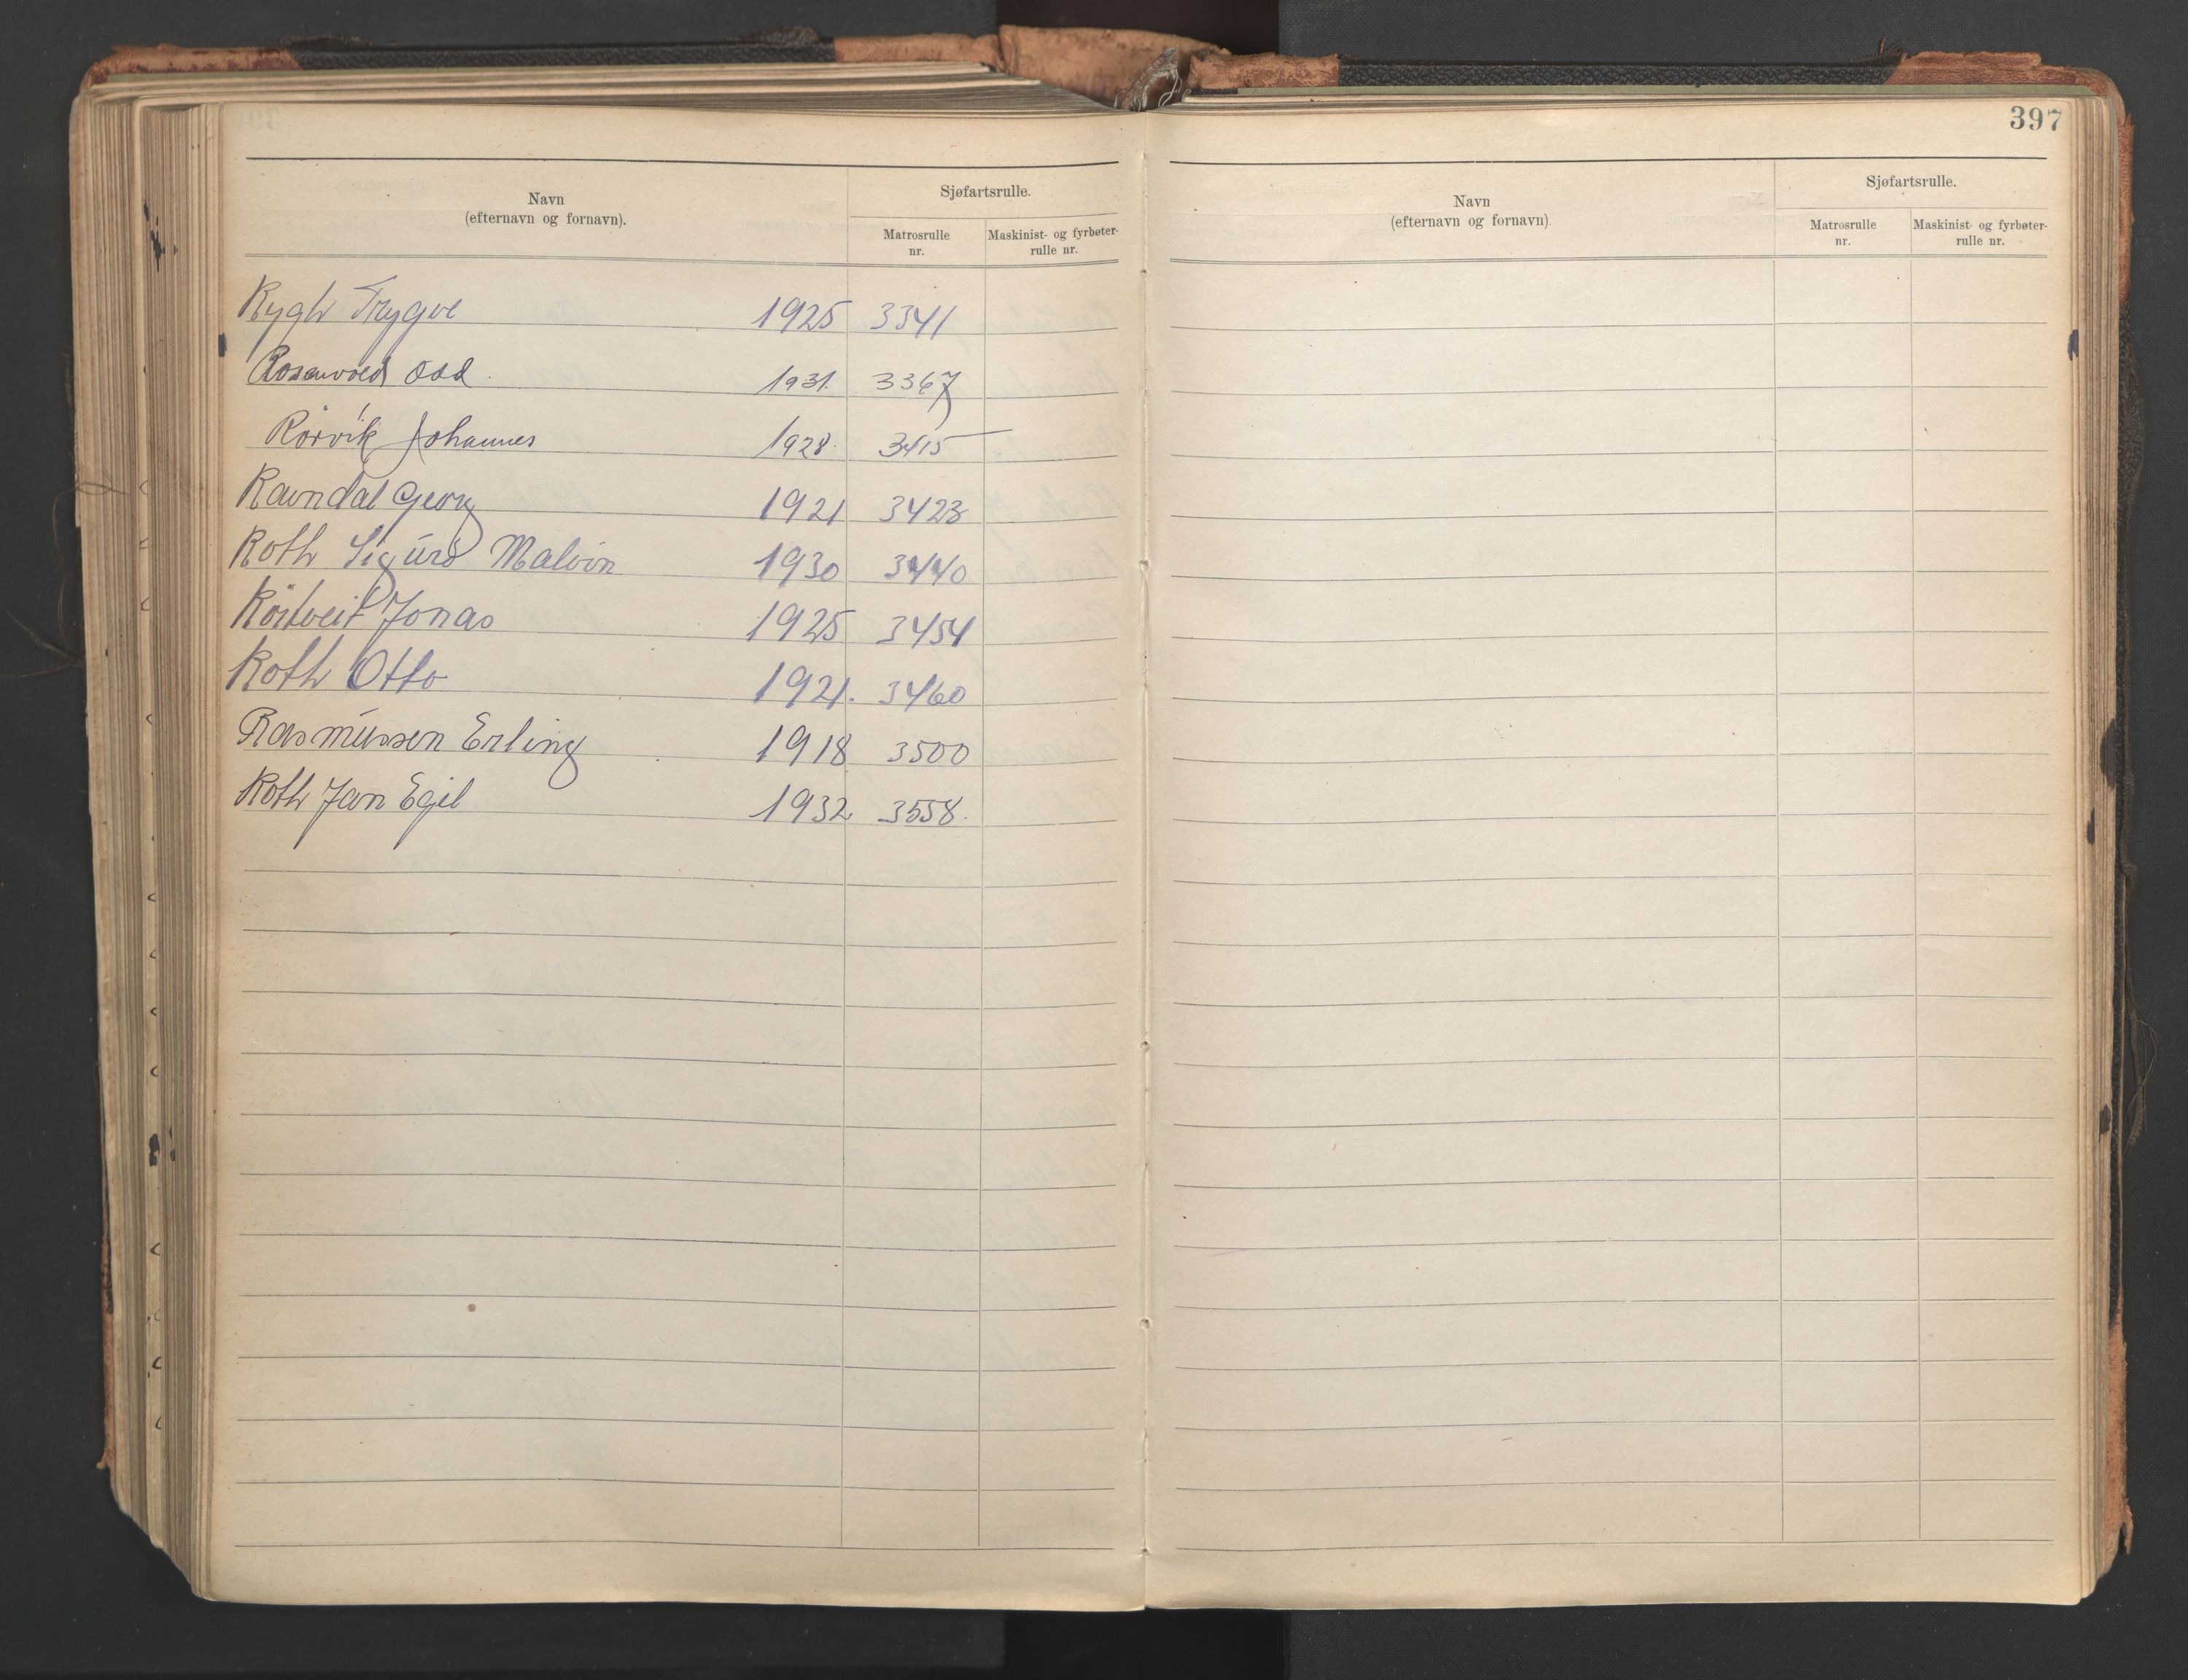 Navn
(efternavn og fornavn).
Sjøfartsrulle.
Matrosrulle
nr.
Maskinist- og fyrbøter-
rulle nr.
Rygh Trygve 1925 3341
Rosenvold Odd. 1931. 3367
Rörvik Johannes 1928. 3415
Ravndal Georg 1921 3423
Roth Sigurd Malvin 1930 3440
Röstveit Jonas 1925 3454
Roth Otto 1921. 3460
Rasmussen Erling 1918 3500
Roth Jan Egil 1932 3558.
397
Navn
(efternavn og fornavn).
Sjøfartsrulle.
Matrosrulle
nr.
Maskinist- og fyrbøter-
rulle nr.